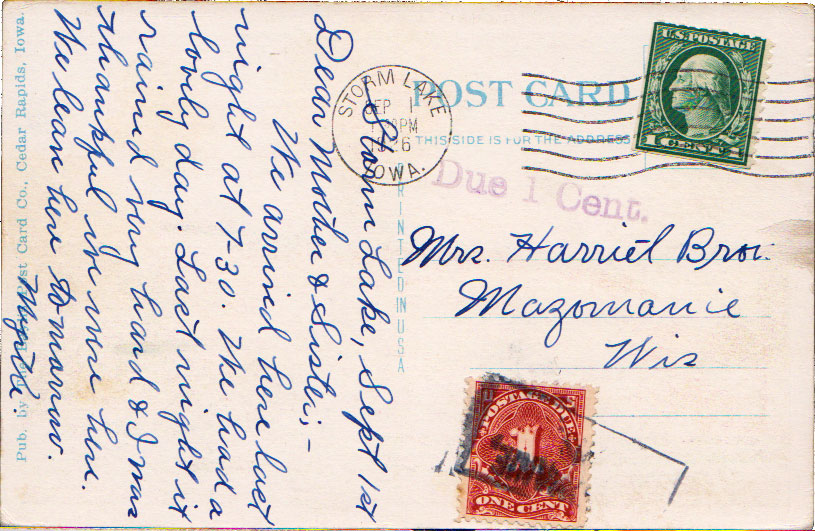 POST CARD
THIS SIDE IS FOR THE ADDRESS
PRINTED IN USA
STORM LAKE
SEP 1
PM
IOWA.
U.S. POSTAGE
1 CENT 1
Due 1 Cent.
Mrs. Harriet Brow.
Mazomanie
Wis
POSTAGE DUE
1
ONE CENT
Storm Lake, Sept 1st
Dear Mother & Sister,-
We arrived here last
night at 7-30. We had a
lovely day. Last night it
rained very hard & I was
thankful we were here.
We leave here tomorrow.
Myrtle.
Pub. by The Post Card Co., Cedar Rapids, Iowa.